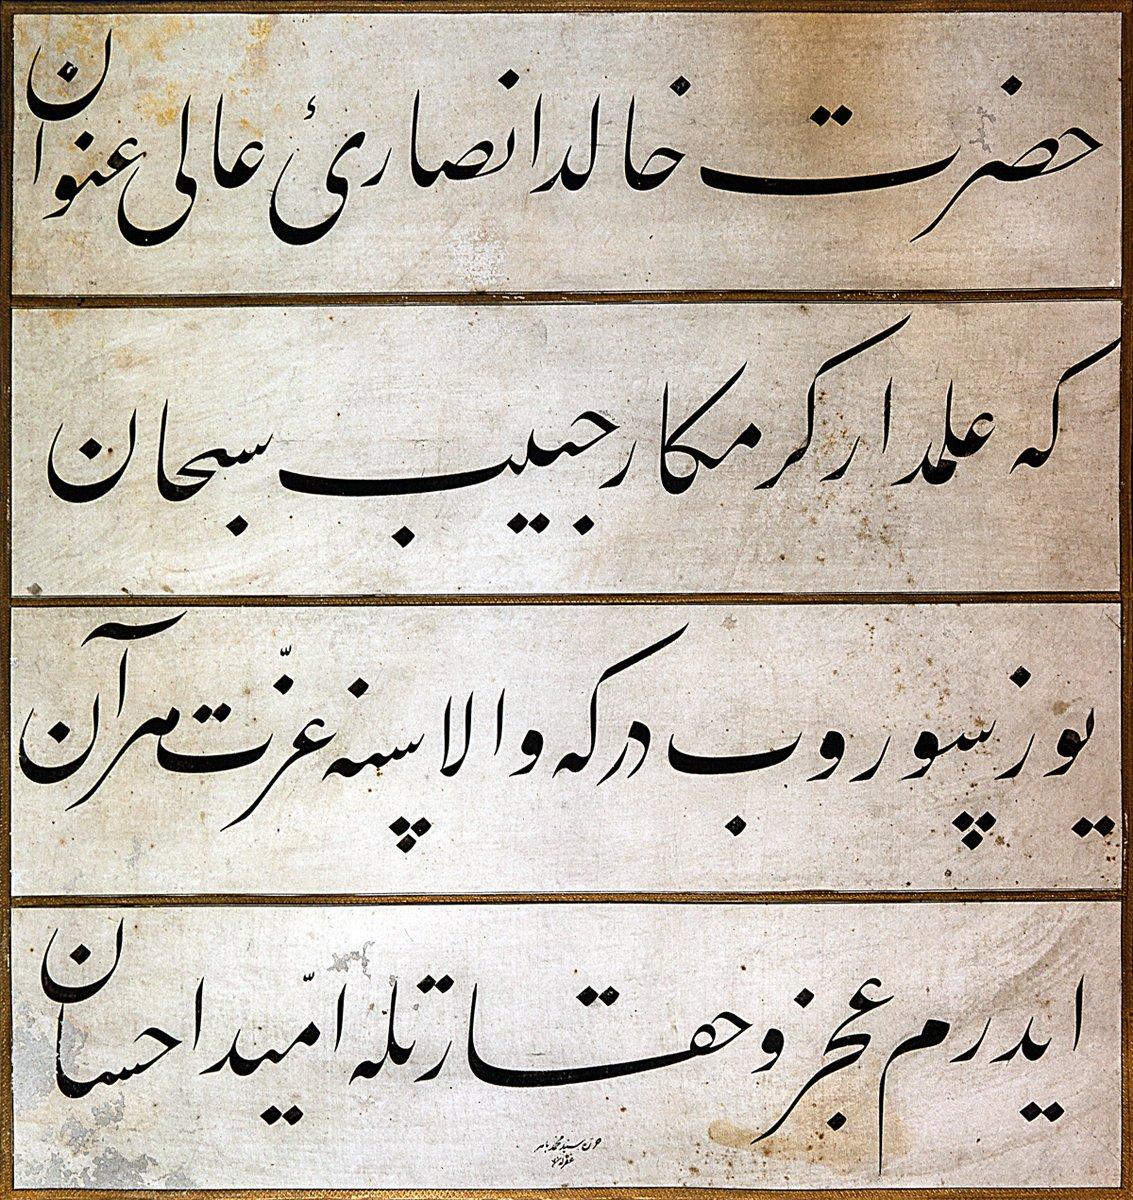 حضرت خالد انصارئ عالی عنوان
که علمدار کرمکار حبیب سبحان
یوز پسوروب درکه والاسنه عزت مهرآن
ایدرم عجز و حقارتله امید احسان